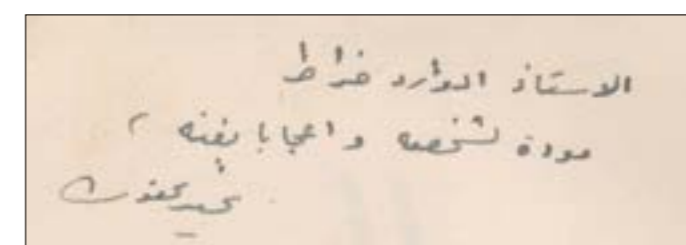 الاستاذ ادوارد خراط
مودة لشخصه و اعجابا بفنه ،
نجيب محفوظ